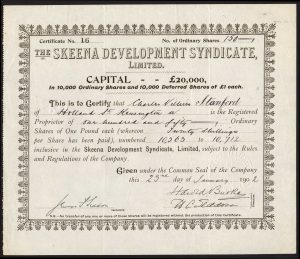 Certificate No. 16 No. of Ordinary Shares 150
THE SKEENA DEVELOPMENT SYNDICATE,
LIMITED.
CAPITAL - - £20,000,
In 10,000 Ordinary Shares and 10,000 Deferred Shares of £1 each.
This is to Certify that Charles Villiers Stanford
of Holland St Kensington W is the Registered
Proprietor of one hundred and fifty Ordinary
Shares of One Pound each (whereon Twenty Shillings
per Share has been paid), numbered 10,563 to 10,712
inclusive in the Skeena Development Syndicate, Limited, subject to the Rules
and Regulations of the Company.
Given under the Common Seal of the Company
this 23rd day of January 1902
N.B.—No transfer of any one or more of these shares will be registered without the production of this Certificate.